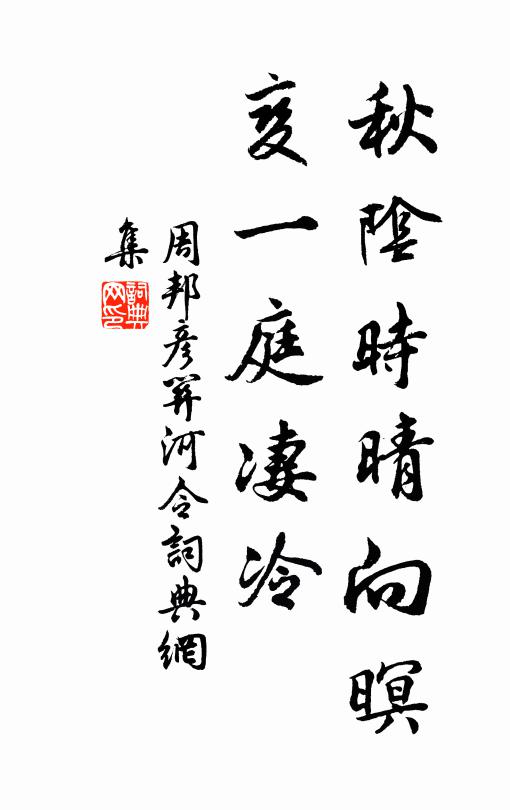 秋陰時晴向暝
变一庭凄冷
周邦彦関河令詞典網
集
詞典
网印